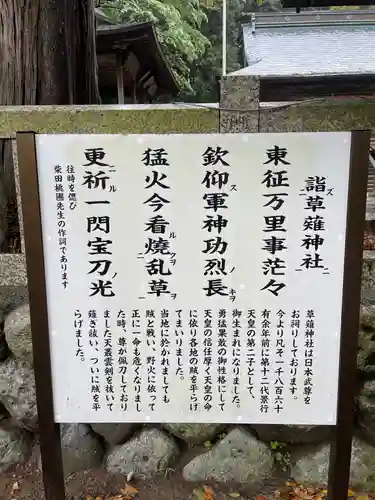 詣ズ草薙神社ニ
東征万里事茫々
欽仰ス軍神功烈ノ長キヲ
猛火今看ル燒クヲ乱草ヲ
更ニ祈ル一閃宝刀ノ光
往時を偲び
柴田桃圃先生の作詞であります
草薙神社は日本武尊を
お祠りしております。
今より凡そ一千八百六十
有余年前に第十二代景行
天皇の第二子として、
御生まれになりました。
勇猛果敢の御性格で景行
天皇の信任厚く天皇の命
に依り各地の賊を平らげ
てまいりました。
当地に於かれましても
賊と戦い、野火に依って
正に一命も危くなりまし
た時、尊が佩刀しており
ました天叢雲剣を持って
薙ぎ祓い、ついに賊を平
らげました。